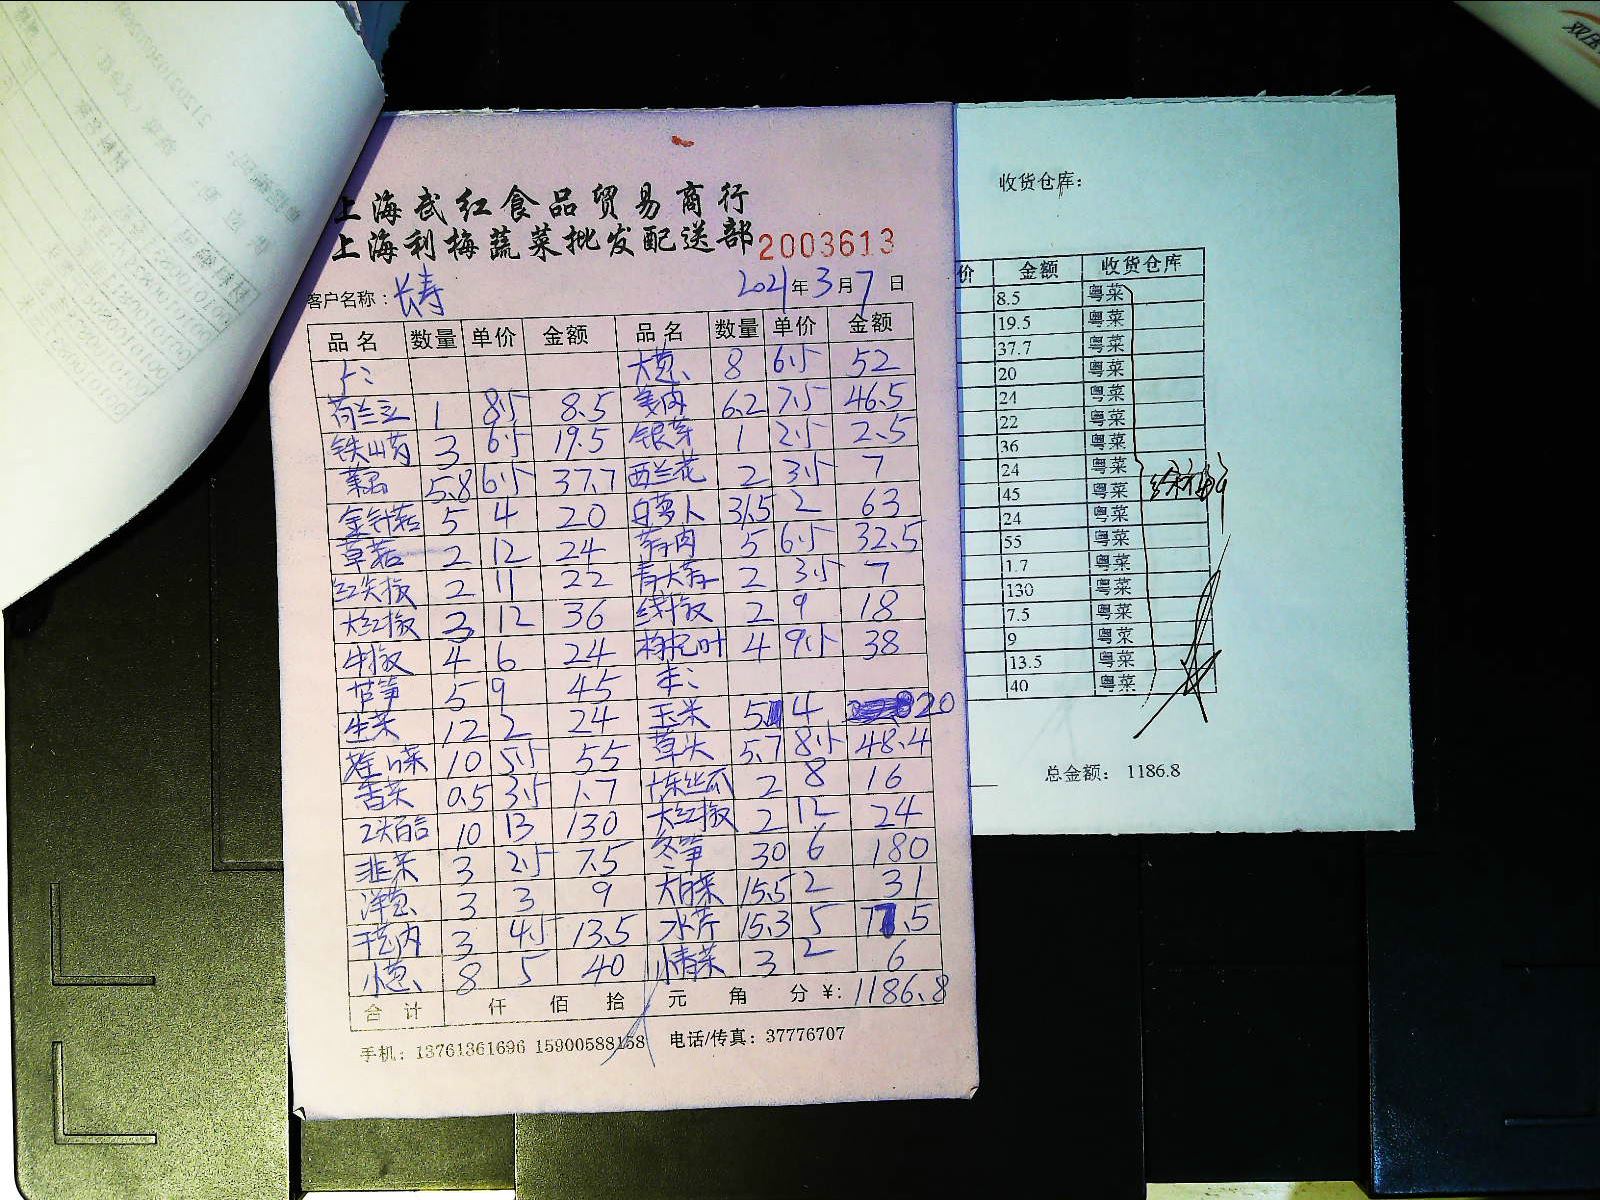 上海武红食品贸易商行
上海利梅蔬菜批发配送部 2003613
客户名称：长寿 2021年3月7日
品名 数量 单价 金额 品名 数量 单价 金额
上： 大葱 8 6.5 52
荷兰豆 1 8.5 8.5 姜肉 6.2 7.5 46.5
铁山药 3 6.5 19.5 银芽 1 2.5 2.5
莱藕 5.8 6.5 37.7 西兰花 2 3.5 7
金针菇 5 4 20 白萝卜 31.5 2 63
草菇 2 12 24 芋肉 5 6.5 32.5
红尖椒 2 11 22 青大蒜 2 3.5 7
大红椒 3 12 36 线椒 2 9 18
牛椒 4 6 24 枸杞叶 4 9.5 38
芦笋 5 9 45 本：
生菜 12 2 24 玉米 5 4 20
娃娃菜 10 5.5 55 草头 5.7 8.5 48.4
香菜 0.5 3.5 1.7 丝瓜 2 8 16
2头百合 10 13 130 大红椒 2 12 24
韭菜 3 2.5 7.5 冬笋 30 6 180
洋葱 3 3 9 大白菜 15.5 2 31
干葱肉 3 4.5 13.5 水芹 15.3 5 77.5
小葱 8 5 40 小青菜 3 2 6
合计 仟 佰 拾 元 角 分 ¥：1186.8
手机：13761361696 15900588158 电话/传真：37776707
收货仓库：
价 金额 收货仓库
8.5 粤菜
19.5 粤菜
37.7 粤菜
20 粤菜
24 粤菜
22 粤菜
36 粤菜
24 粤菜
45 粤菜
24 粤菜
55 粤菜
1.7 粤菜
130 粤菜
7.5 粤菜
9 粤菜
13.5 粤菜
40 粤菜
总金额：1186.8